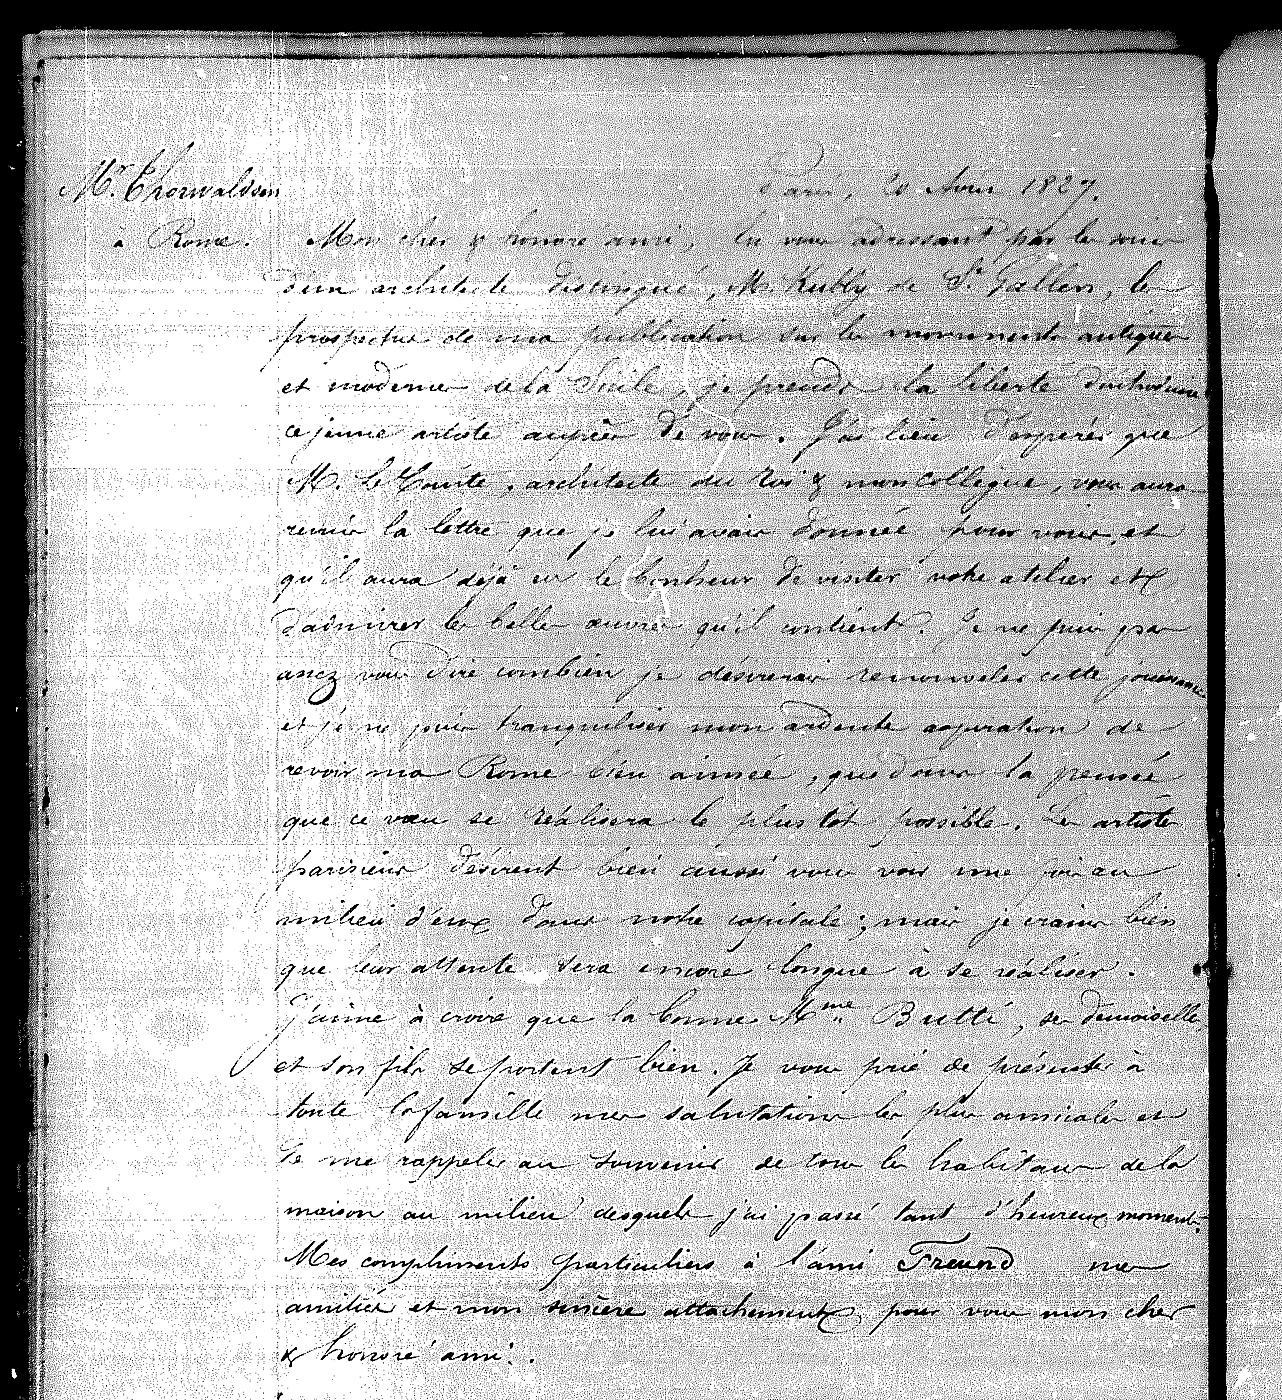 Mr. Thorwaldsen
à Rome.
Paris, 20 Avril 1827.
Mon cher & honoré ami, En vous adressant par les soins
d'un architecte distingué, Mr. Kubly de St. Gallen, le
prospectus de ma publication sur les monuments antiques
et modernes de la Sicile, je prends la liberté d'introduire
ce jeune artiste auprès de vous. J'ai lieu d'espérer que
M. le Comte, architecte du roi & mon collègue, vous aura
remis la lettre que je lui avais donnée pour vous, et
qu'il aura déjà eu le bonheur de visiter votre atelier et
d'admirer les belles œuvres qu'il contient. Je ne puis pas
assez vous dire combien je désirerais renouveler cette jouissance
et je ne puis tranquiliser mon ardente aspiration de
revoir ma Rome bien aimée, que dans la pensée
que ce vœu se réalisera le plus tôt possible. Les artistes
parisiens désirent bien aussi vous voir une fois au
milieu d'eux dans notre capitale; mais je crains bien
que leur attente sera encore longue à se réaliser.
J'aime à croire que la bonne Mme. Butti, ses demoiselles
et son fils se portent bien. Je vous prie de présenter à
toute la famille mes salutations les plus amicales et
de me rappeler au souvenir de tous les habitans de la
maison au milieu desquels j'ai passé tant d'heureux moments.
Mes compliments particuliers à l'ami Freund mes
amitiés et mon sincère attachement pour vous mon cher
& honoré ami.